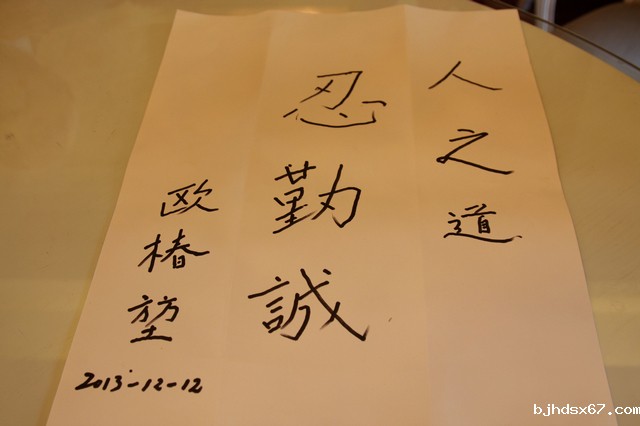 人之道
忍勤誠
欧椿堃
2013-12-12
bjhdsx67.com